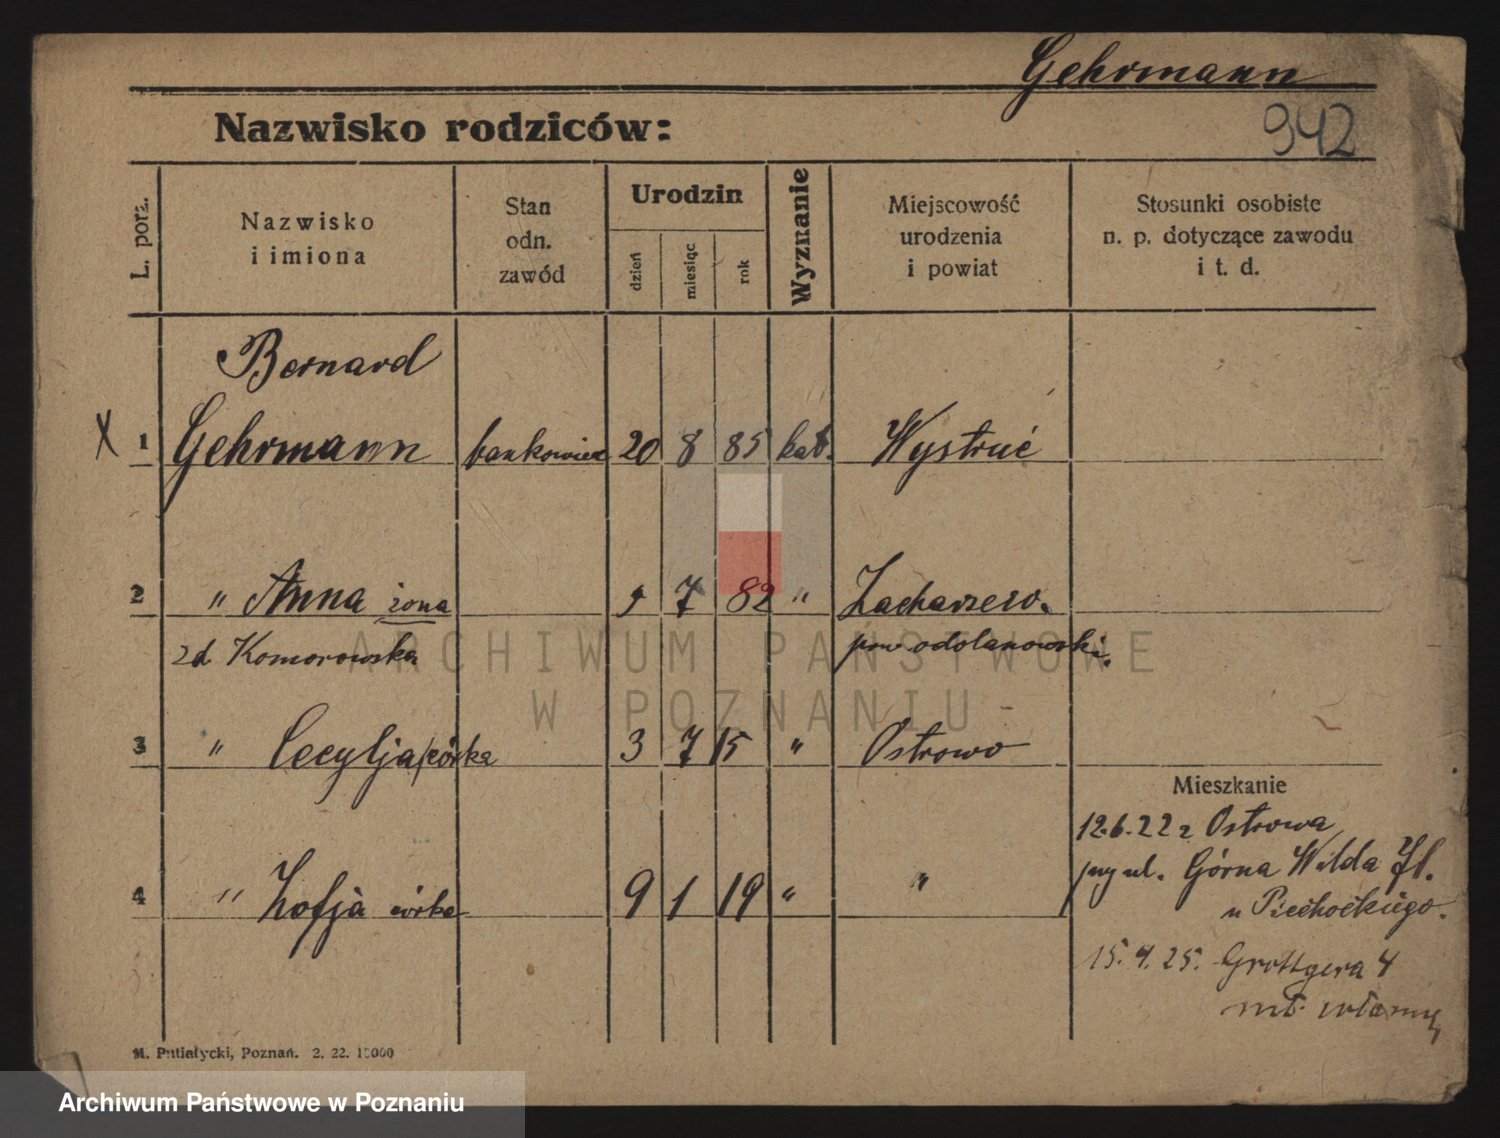 Gehrmann
942
Nazwisko rodziców:
L. porz.
Nazwisko
i imiona
Stan
odn.
zawód
Urodzin
dzień
miesiąc
rok
Wyznanie
Miejscowość
urodzenia
i powiat
Stosunki osobiste
n. p. dotyczące zawodu
i t. d.
Bernard
X 1 Gehrmann bankowiec 20 8 85 kat. Wystruć
2 " Anna żona 7 82 " Zacharzew.
zd. Komorowska pow odolanowski.
3 " Cecylja córka 3 7 15 " Ostrowo
Mieszkanie
12.6.22 z Ostrowa
przy ul. Górna Wilda
4 " Zofja córka 9 1 19 " "
u Piechockiego.
15. 9. 25. Grottgera 4
H. Putiatycki, Poznań. 2. 22. 10000
ARCHIWUM PAŃSTWOWE
W POZNANIU
Archiwum Państwowe w Poznaniu